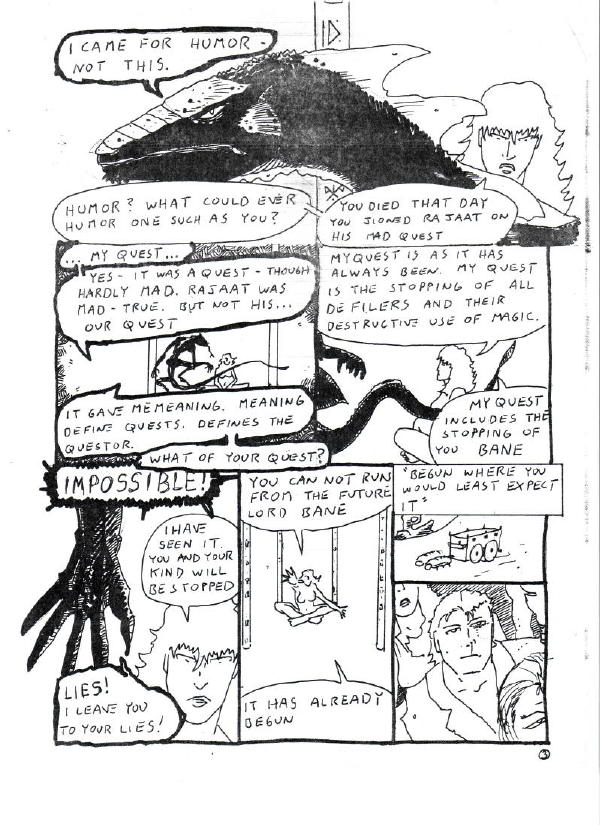 I CAME FOR HUMOR -
NOT THIS.
HUMOR? WHAT COULD EVER
HUMOR ONE SUCH AS YOU?
YOU DIED THAT DAY
YOU JIONED RAJAAT ON
HIS MAD QUEST
... MY QUEST...
YES - IT WAS A QUEST - THOUGH
HARDLY MAD. RAJAAT WAS
MAD - TRUE. BUT NOT HIS...
OUR QUEST
MY QUEST IS AS IT HAS
ALWAYS BEEN. MY QUEST
IS THE STOPPING OF ALL
DEFILERS AND THEIR
DESTRUCTIVE USE OF MAGIC.
IT GAVE ME MEANING. MEANING
DEFINE QUESTS. DEFINES THE
QUESTOR.
WHAT OF YOUR QUEST?
MY QUEST
INCLUDES THE
STOPPING OF
YOU BANE
IMPOSSIBLE!
I HAVE
SEEN IT.
YOU AND YOUR
KIND WILL
BE STOPPED
LIES!
I LEAVE YOU
TO YOUR LIES!
YOU CAN NOT RUN
FROM THE FUTURE
LORD BANE
IT HAS ALREADY
BEGUN
"BEGUN WHERE YOU
WOULD LEAST EXPECT
IT"
3